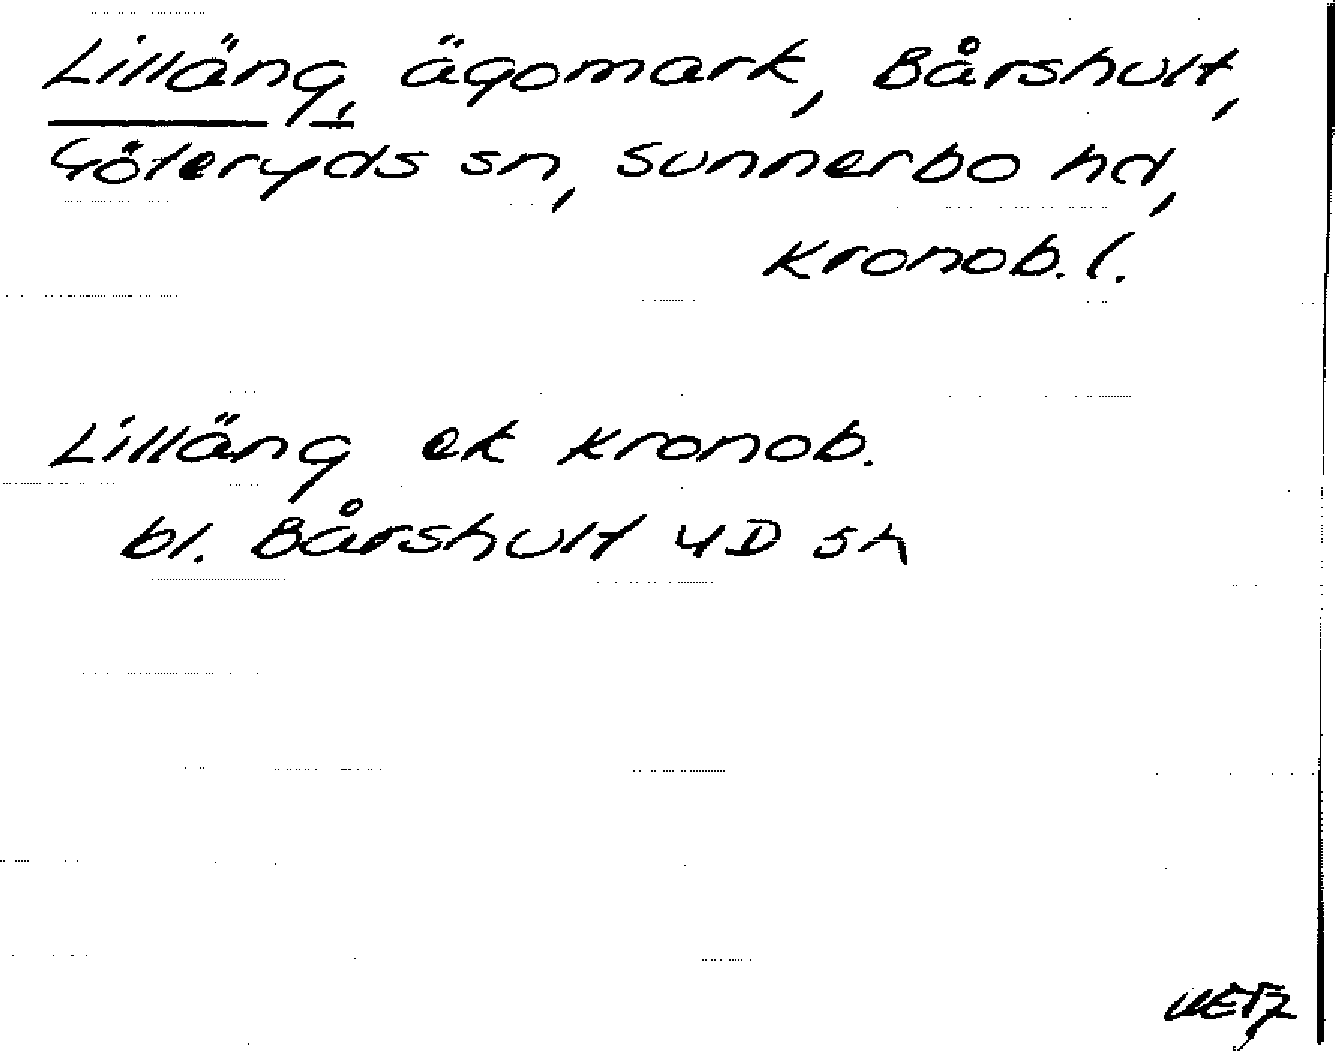 Lilläng, ägomark, Bårshult,
Göteryds sn, Sunnerbo hd,
Kronob. l.
Lilläng ek Kronob.
bl. Bårshult 4D 5h